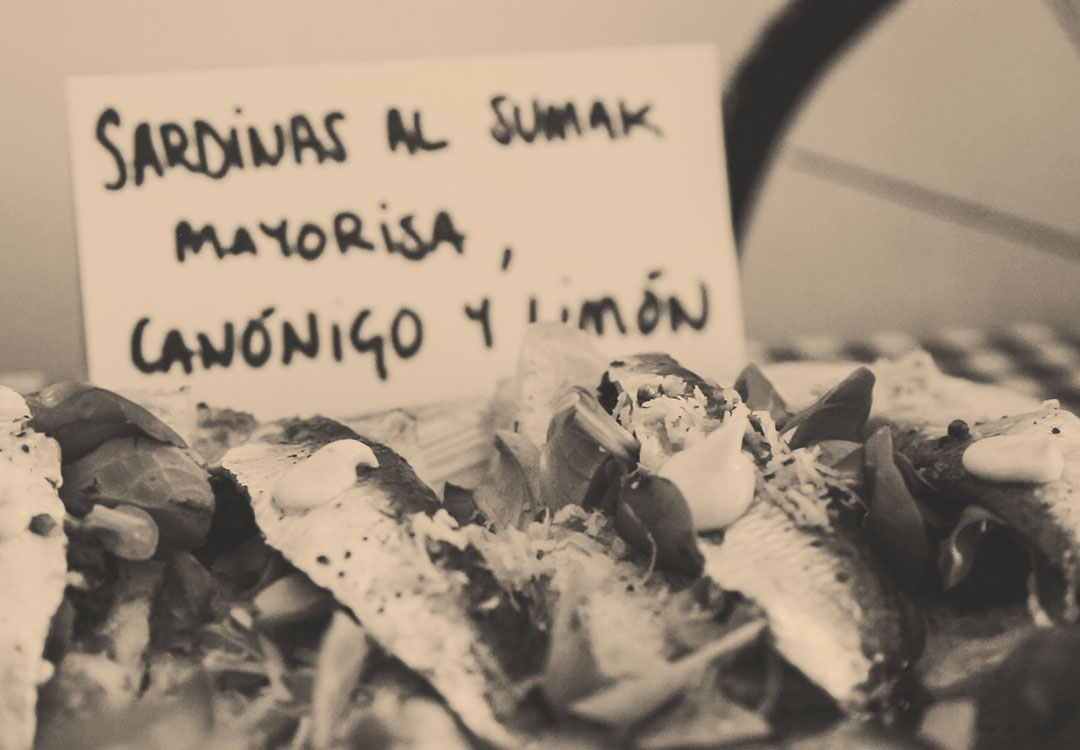 SARDINAS AL SUMAK
MAYORISA,
CANÓNIGO Y LIMÓN